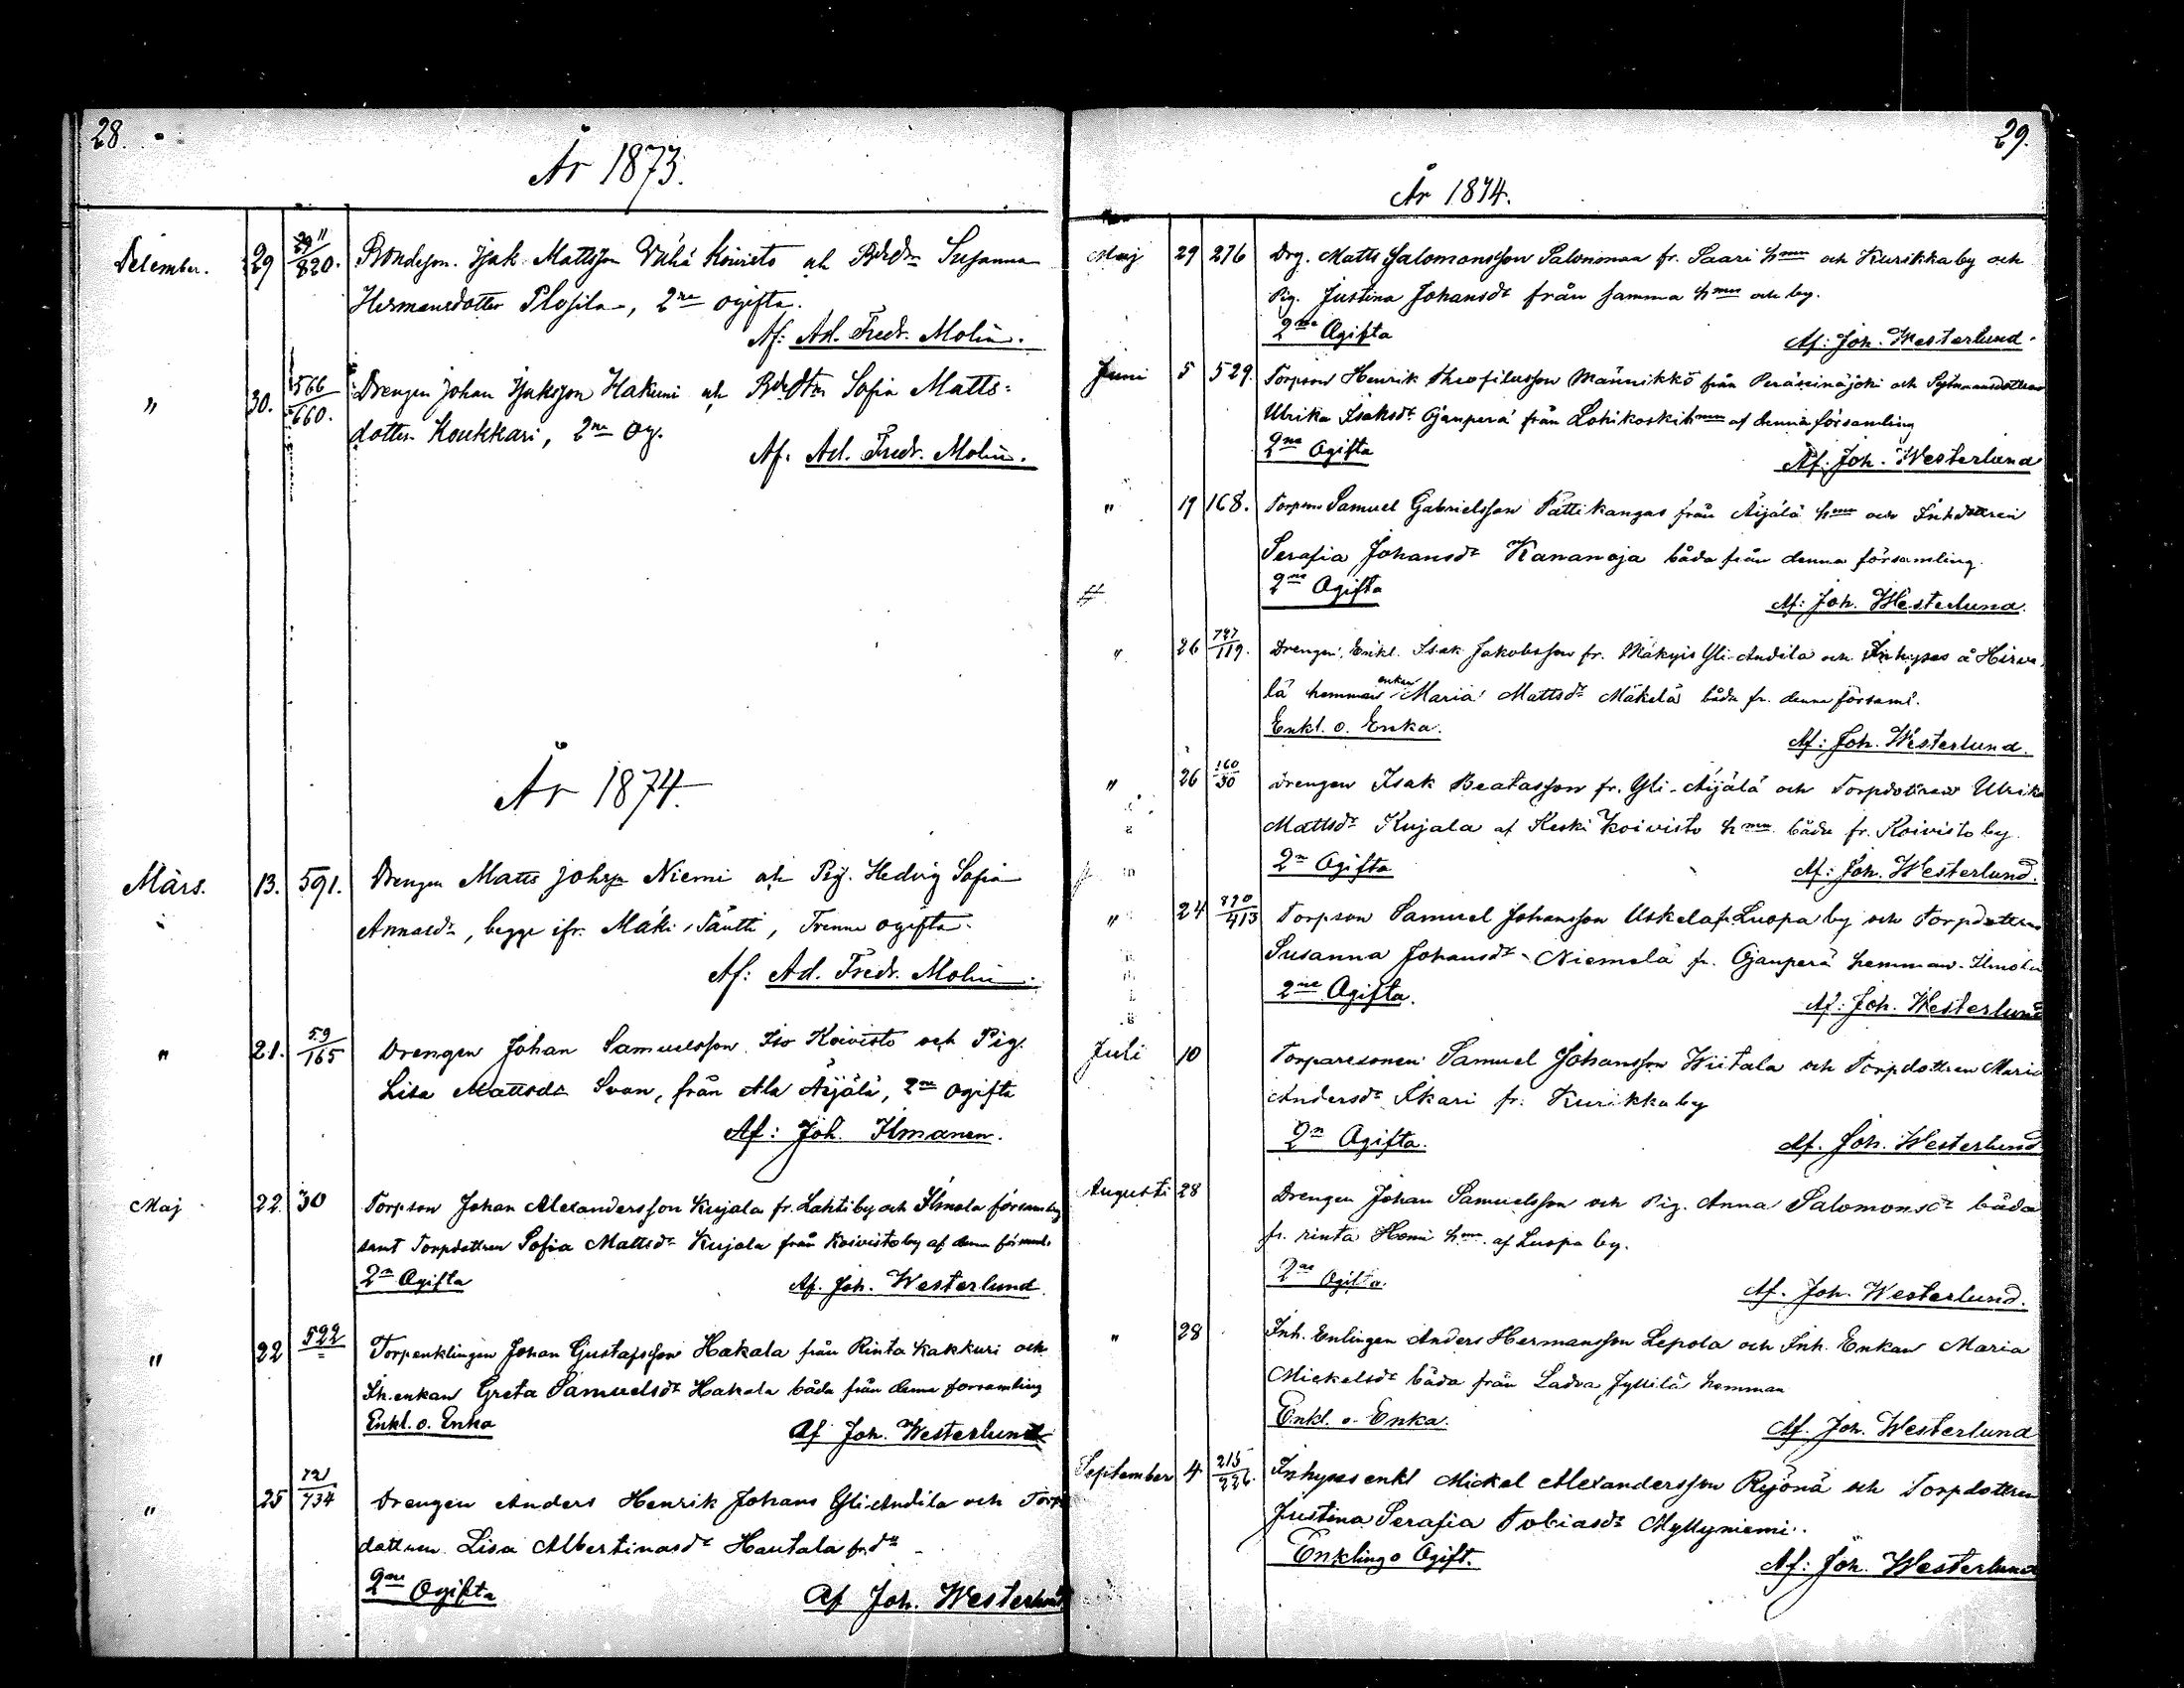 28.
År 1873.
December. 29 29 11/820. Bondeson. Isak Mattsson Vähä Koivisto och Bdedtr Susanna
Hermansdotter Plosila, 2ne ogifta.
Af: Ad. Fredr. Molin.
" 30. 566/660. Drengen Johan Isaksson Hakuni och Bdedtr Sofia Matts-
dotter Koukkari, 2ne Og.
Af. Ad. Fredr. Molin.
År 1874.
Mars. 13. 591. Drengen Matts Johsn Niemi och Pig. Hedvig Sofia
Annasdr, begge ifr. Mäki Säntti, Tvenne ogifta.
Af: Ad. Fredr. Molin.
" 21. 59/165 Drengen Johan Samuelsson Iso Koivisto och Pig.
Lisa Mattsdr Svan, från Ala Äijälä, 2ne ogifta
Af: Joh. Ilmanen.
Maj 22. 30 Torpson Johan Alexandersson Kujala fr. Lahti by och Ilmola församling
samt Torpdottren Sofia Mattsdr Kujala från Koivisto by af denna församl.
2n Ogifta Af. Joh. Westerlund.
" 22 522 Torpenklingen Johan Gustafsson Hakala från Rinta Kakkuri och
Ih.enkan Greta Samuelsdr Hakala båda från denna forsamling
Enkl. o. Enka Af Joh. Westerlund
" 25 721/734 Drengen Anders Henrik Johans Yli-Andila och Torp
dottren Lisa Albertinasdr Hautala fr. do
2ne Ogifta Af Joh. Westerlund
29.
År 1874.
Maj 29 276 Drg. Matts Salomonsson Salonmaa fr. Saari hmn och Kurikka by och
Pig. Justina Johansdr från samma hmn och by.
2ne Ogifta Af: Joh. Westerlund.
Juni 5 529. Torpson Henrik Theofilusson Männikkö från Peräseinäjoki och
Ulrika Isaksdr Ojanperä från Lohikoski hmn af denna församling
2ne Ogifta Af: Joh. Westerlund
" 19 168. Torpson Samuel Gabrielsson Pättikangas från Äijälä hmn och Inhdottren
Serafia Johansdr Kananoja båda från denna församling.
2ne Ogifta
Af: Joh. Westerlund.
" 26 727/119. Drengen, Enkl. Isak Jakobsson fr. Mäkyis Yli-Andila och Inhyses å Hirve
lä hemman enkan Maria Mattsdr Mäkelä båda fr. denna församl.
Enkl. o. Enka.
Af: Joh. Westerlund.
" 26 160/30 Drengen Isak Beatasson fr. Yli-Äijälä och Torpdottren Ulrika
Mattsdr Kujala af Keski Koivisto hmn båda fr. Koivisto by.
2n Ogifta Af: Joh. Westerlund.
" 24 890/413 Torpson Samuel Johansson Uskela fr. Luopa by och Torpdottren
Susanna Johansdr Niemelä fr. Ojanperä hemman Ilmola
2ne Ogifta.
Af: Joh. Westerlund
Juli 10 Torparesonen Samuel Johansson Wiitala och Torpdottren Maria
Andersdr Ikari fr. Kurikka by
2n Ogifta. Af. Joh. Westerlund
Augusti 28 Drengen Johan Samuelsson och Pig. Anna Salomonsdr båda
fr. rinta Homi hmn. af Luopa by.
2ne Ogifta.
Af. Joh. Westerlund.
" 28 Inh. Enlingen Anders Hermansson Lepola och Inh. Enkan Maria
Mickelsdr båda från Ladva Jyllilä hemman
Enkl. o. Enka. Af. Joh. Westerlund
September 4 215/226. Inhyses enkl Mickel Alexandersson Rejönä och Torpdottren
Justina Serafia Tobiasdr Myllyniemi.
Enkling o Ogift. Af: Joh. Westerlund